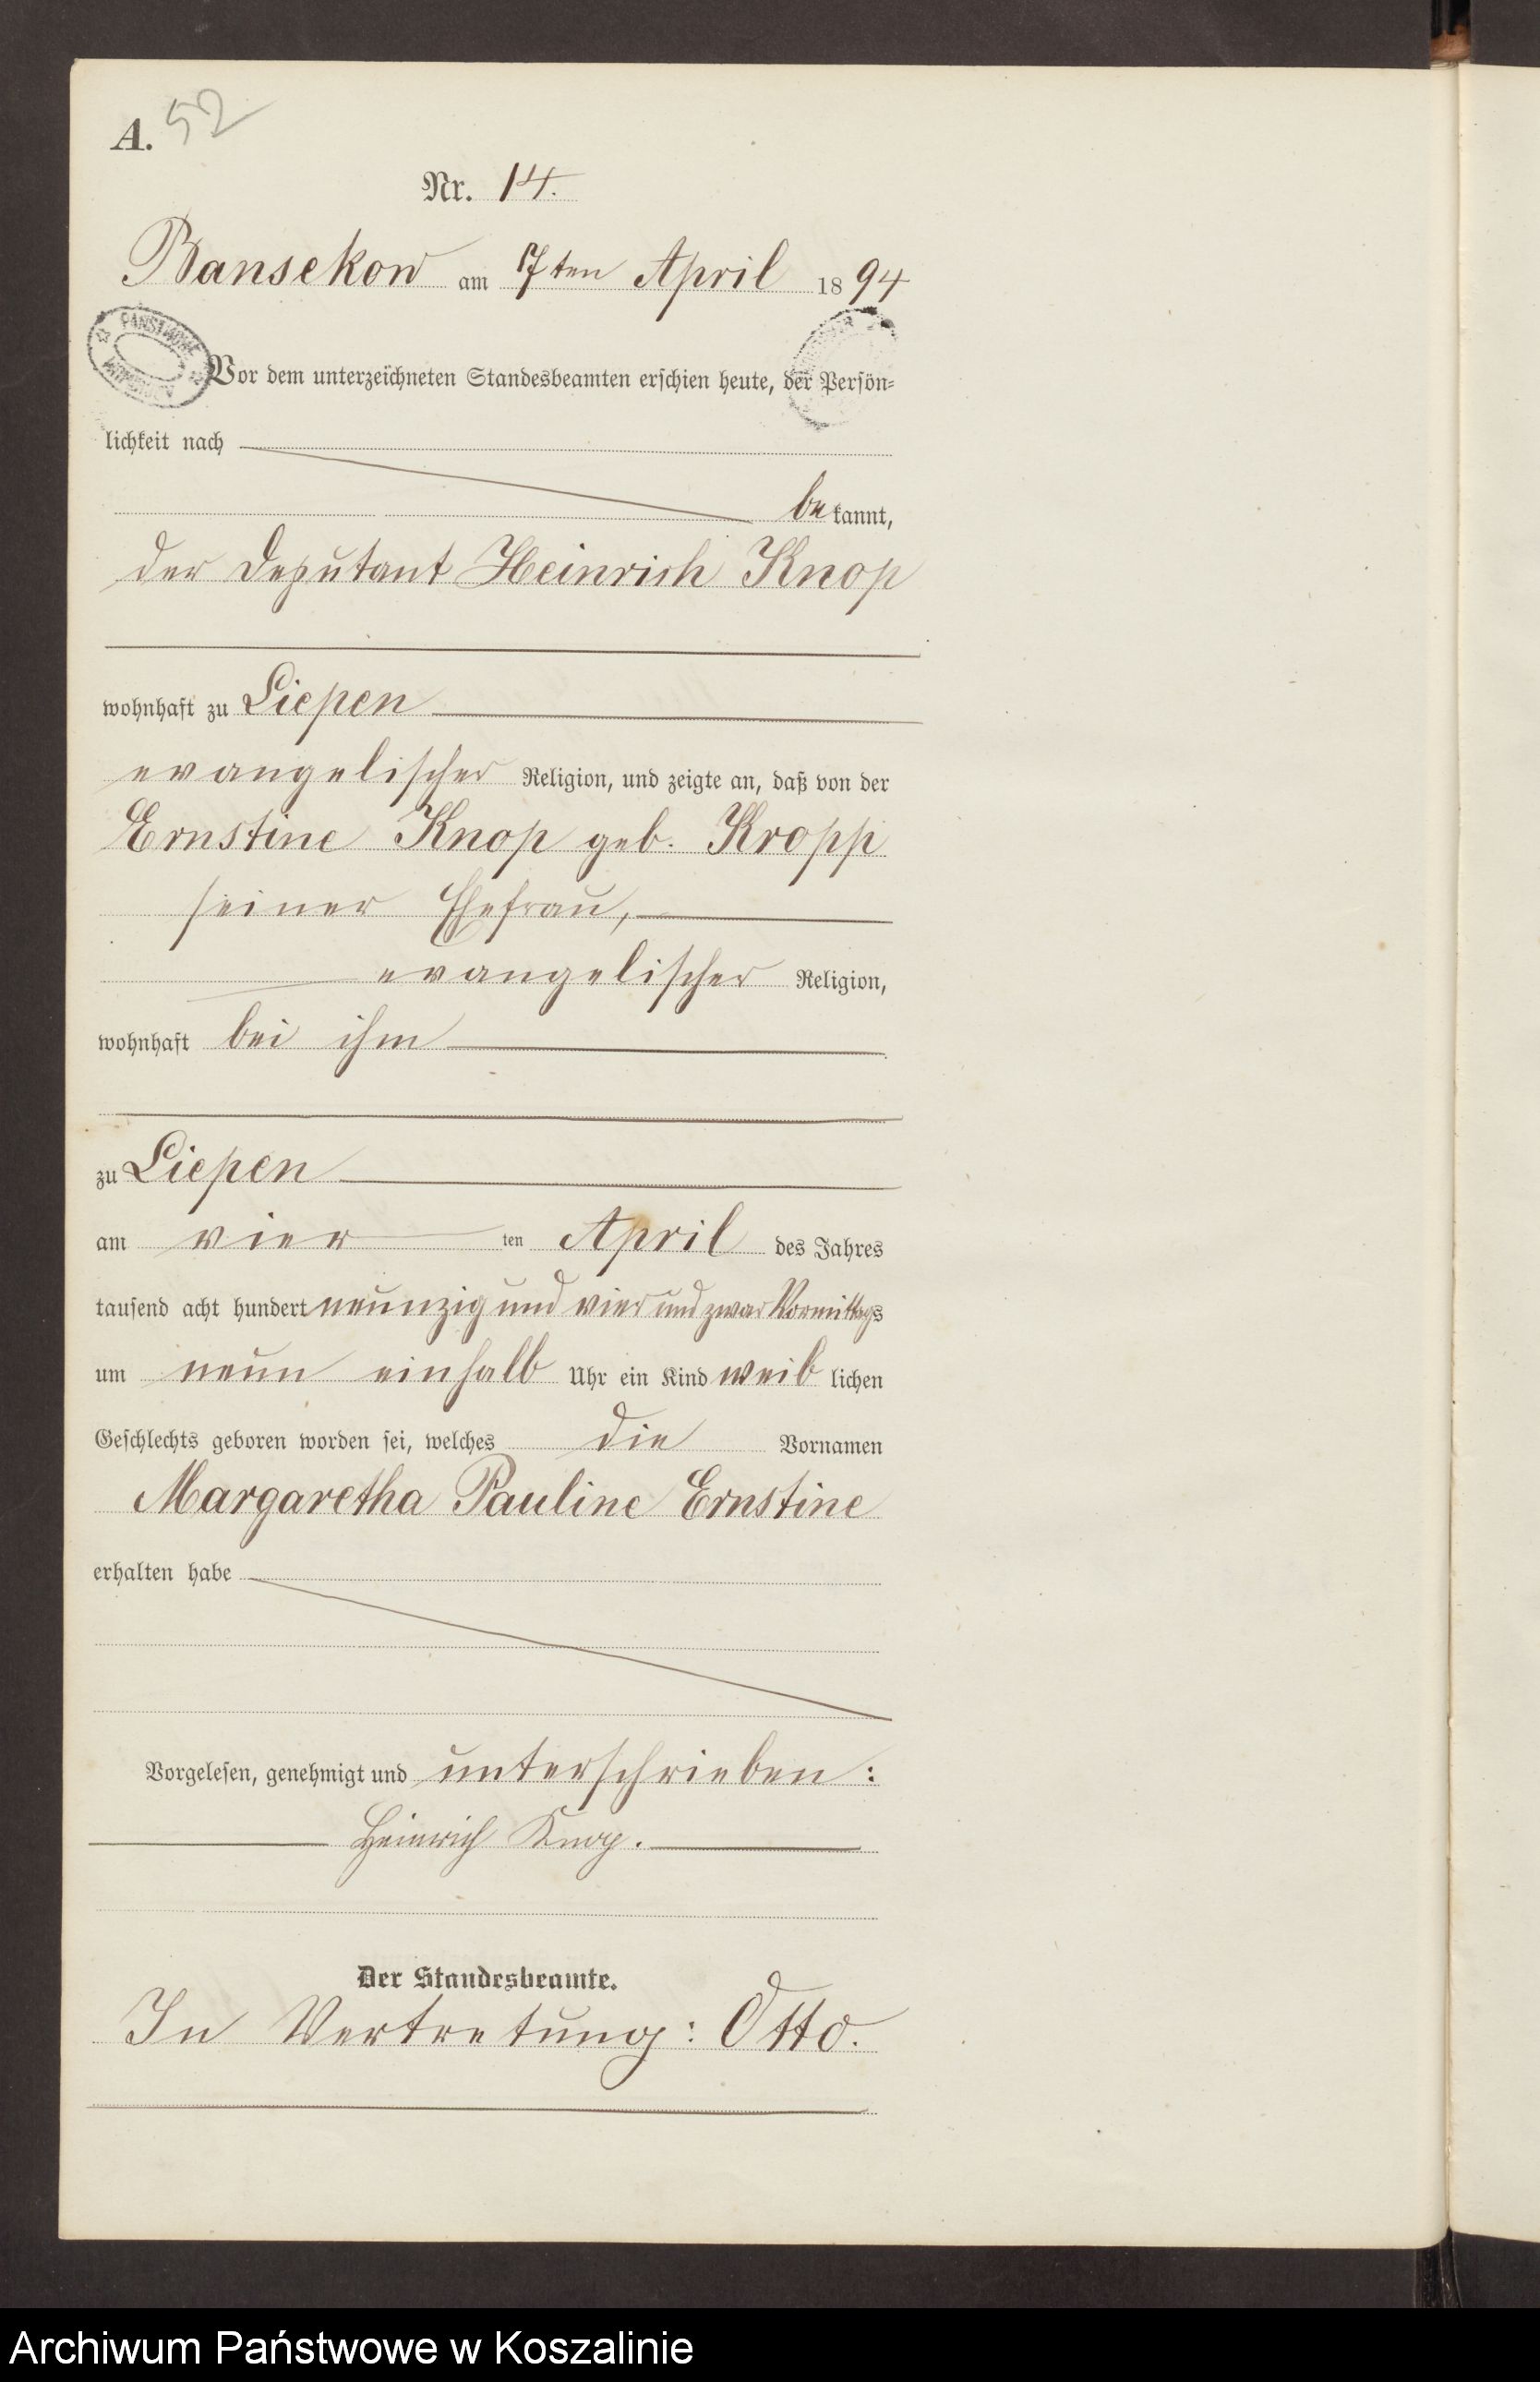 A. 52
Nr. 14.
Bansekow am 7ten April 1894
PAŃSTWOWE ARCHIWUM
Vor dem unterzeichneten Standesbeamten erschien heute, der Persön=
lichkeit nach
bekannt,
der Deputant Heinrich Knop
wohnhaft zu Liepen
evangelischer Religion, und zeigte an, daß von der
Ernstine Knop geb. Kropp
seiner Ehefrau,
evangelischer Religion,
wohnhaft bei ihm
zu Liepen
am vier ten April des Jahres
tausend acht hundert neunzig und vier und zwar Vormittags
um neun einhalb Uhr ein Kind weiblichen
Geschlechts geboren worden sei, welches die Vornamen
Margaretha Pauline Ernstine
erhalten habe
Vorgelesen, genehmigt und unterschrieben:
Heinrich Knop.
Der Standesbeamte.
In Vertretung: Otto.
Archiwum Państwowe w Koszalinie